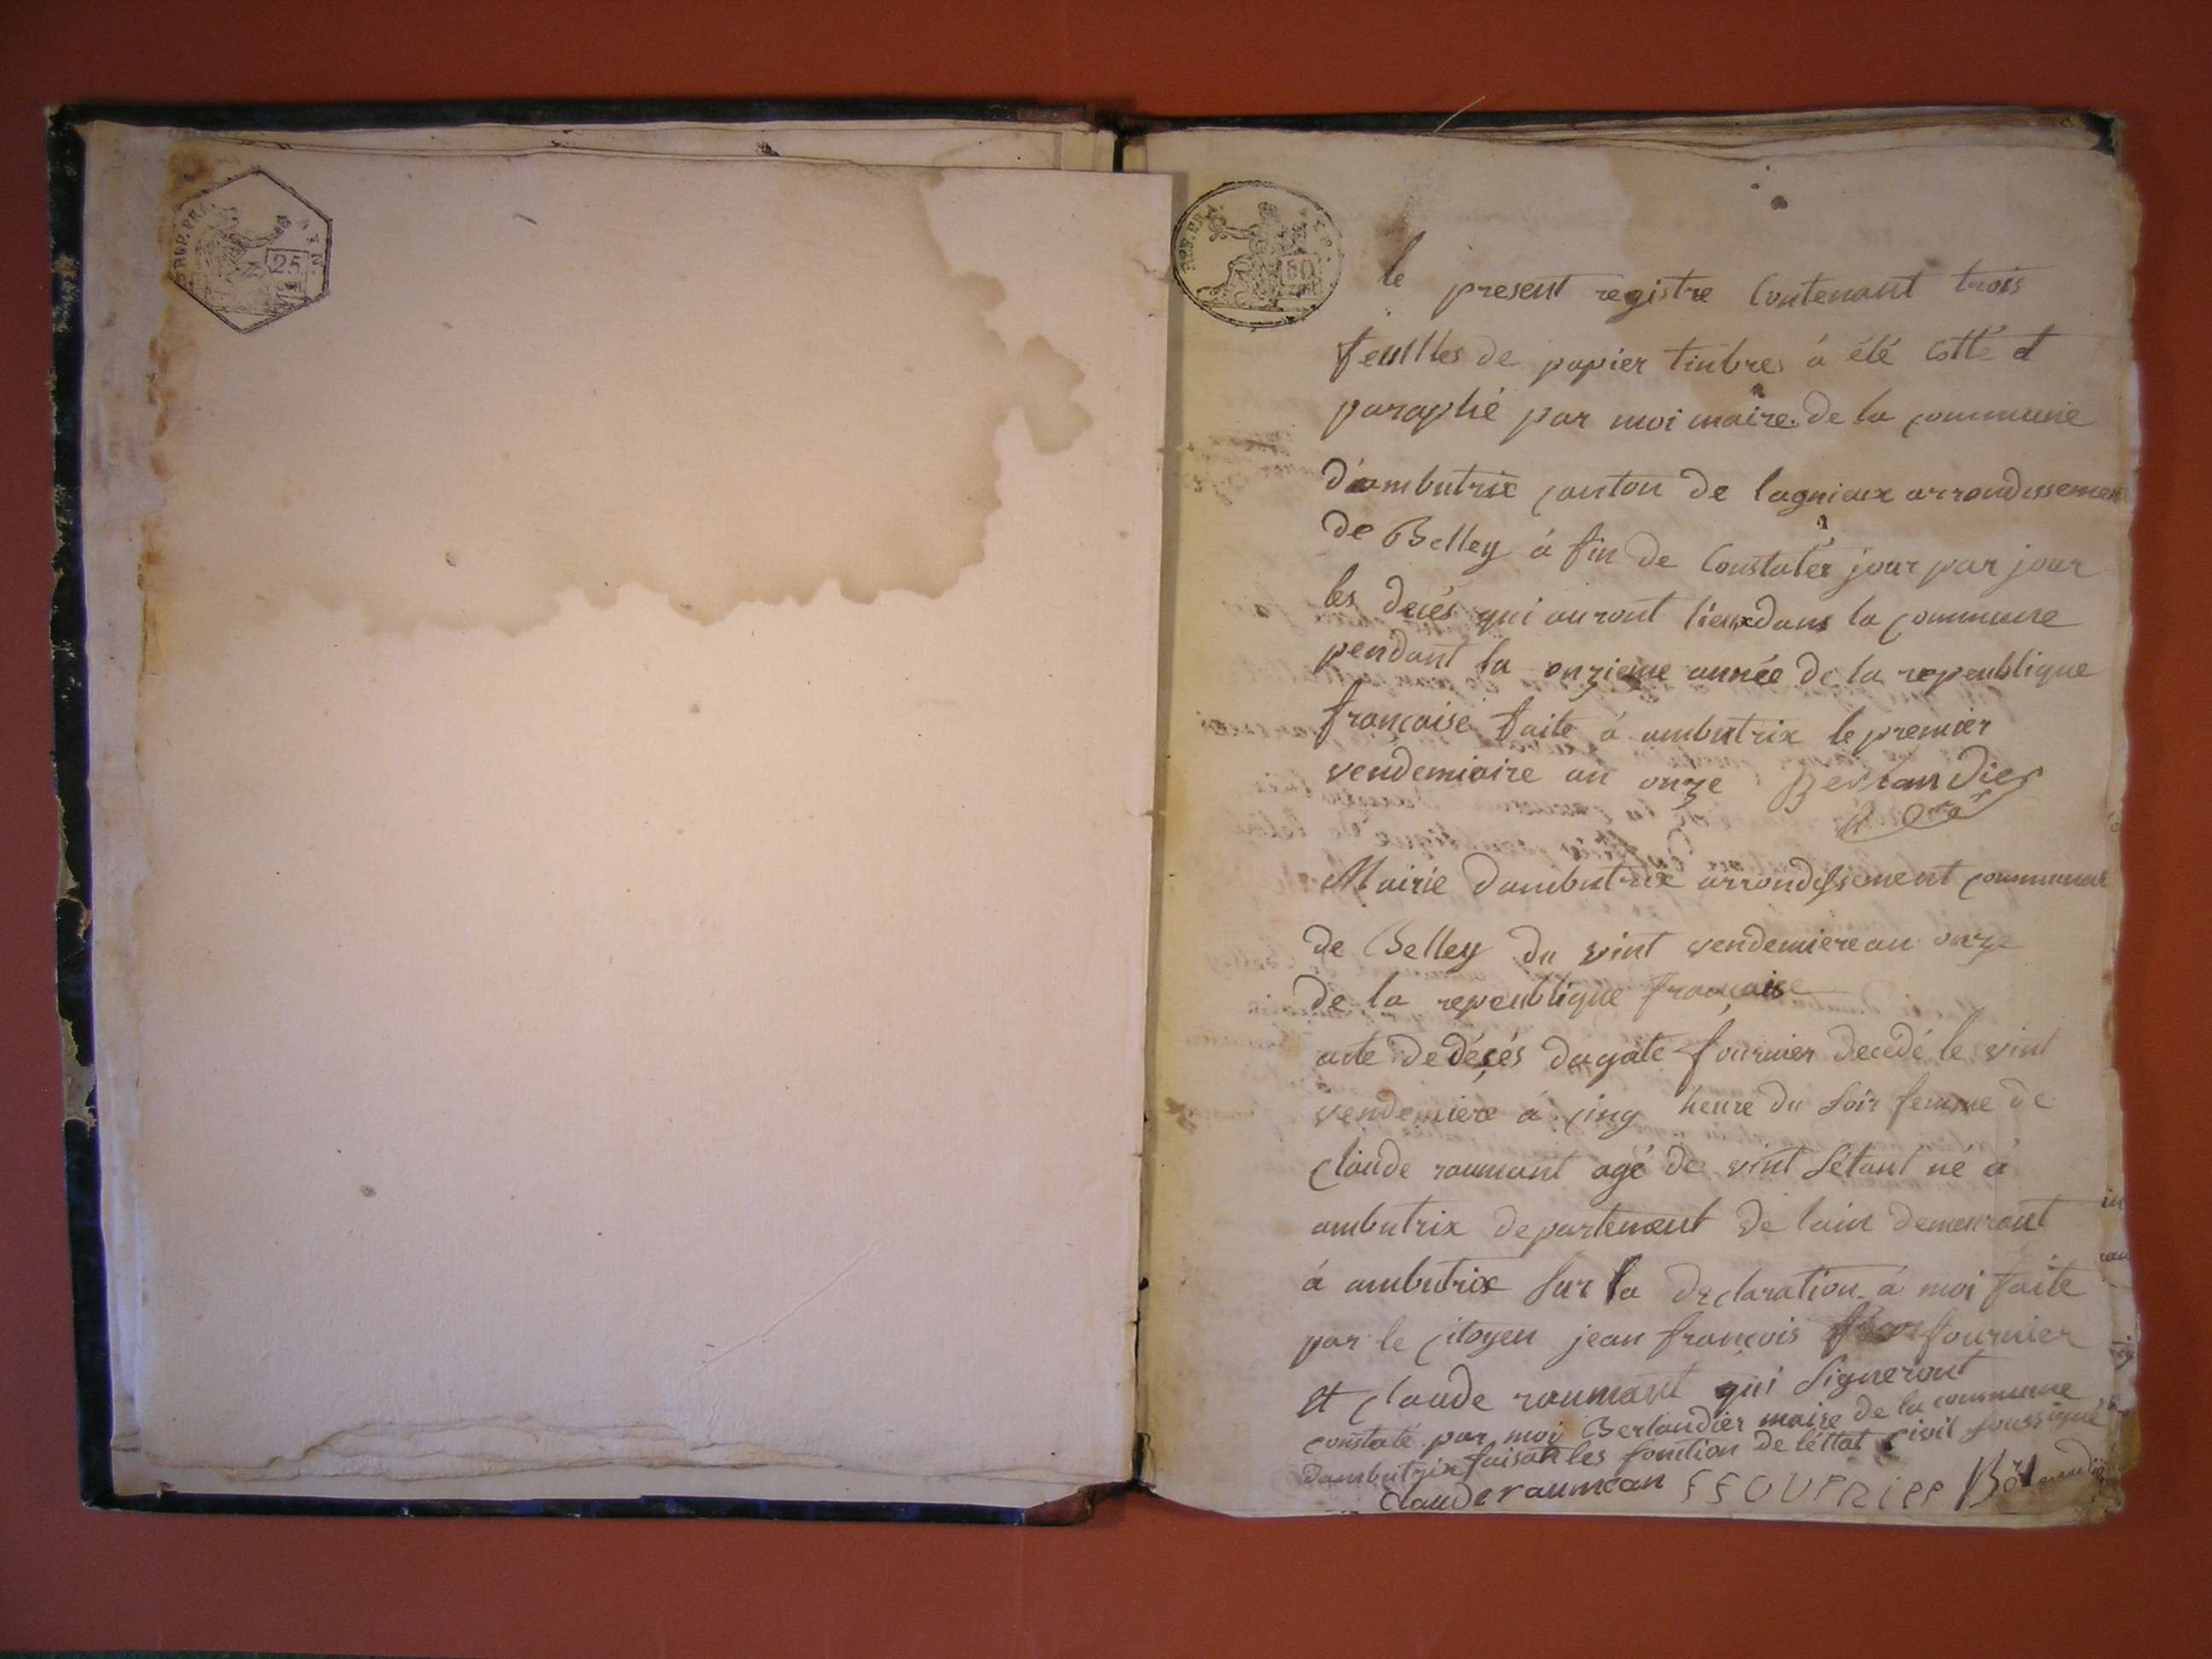 REP. FRA.
25
REP. FRA.
50
le present registre Contenant trois
feuilles de papier timbre à été Cotté et
paraphé par moi maire de la commune
d'ambutrix canton de lagnieux arrondissement
de Belley à fin de Constater jour par jour
les decés qui auront lieux dans la commune
pendant la onzieme année de la repeublique
françaisé faite à ambutrix le premier
vendemiaire an onze Berlandier
Mairie dambutrix arrondissement communal
de Belley du vint vendemiere an onze
de la repeublique française
acte de déçés dagate fournier decedé le vint
vendemiere à cinq heure du soir femme de
claude raumant agé de vint sétant né à
ambutrix departement de lain demeurant
à ambutrix sur la declaration à moi faite
par le citoyen jean françois fournier
et claude raumant qui signeront
constaté par moi Berlandier maire de la commune
dambutrix faisant les fonction de léttat civil soussigné
claude raumean